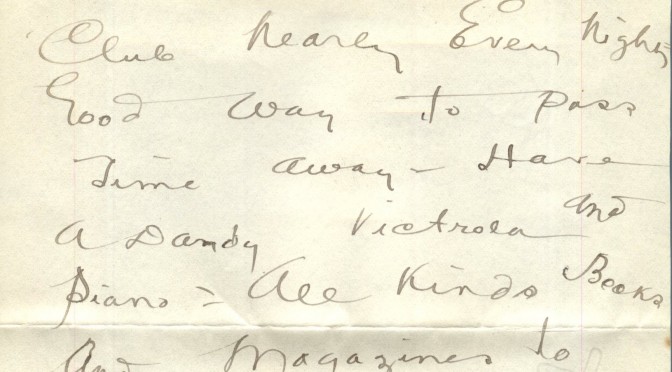 Club Nearly Every Night
Good Way to Pass
Time away - Have
A Dandy Victrola and
Piano - All Kinds Books
And Magazines to